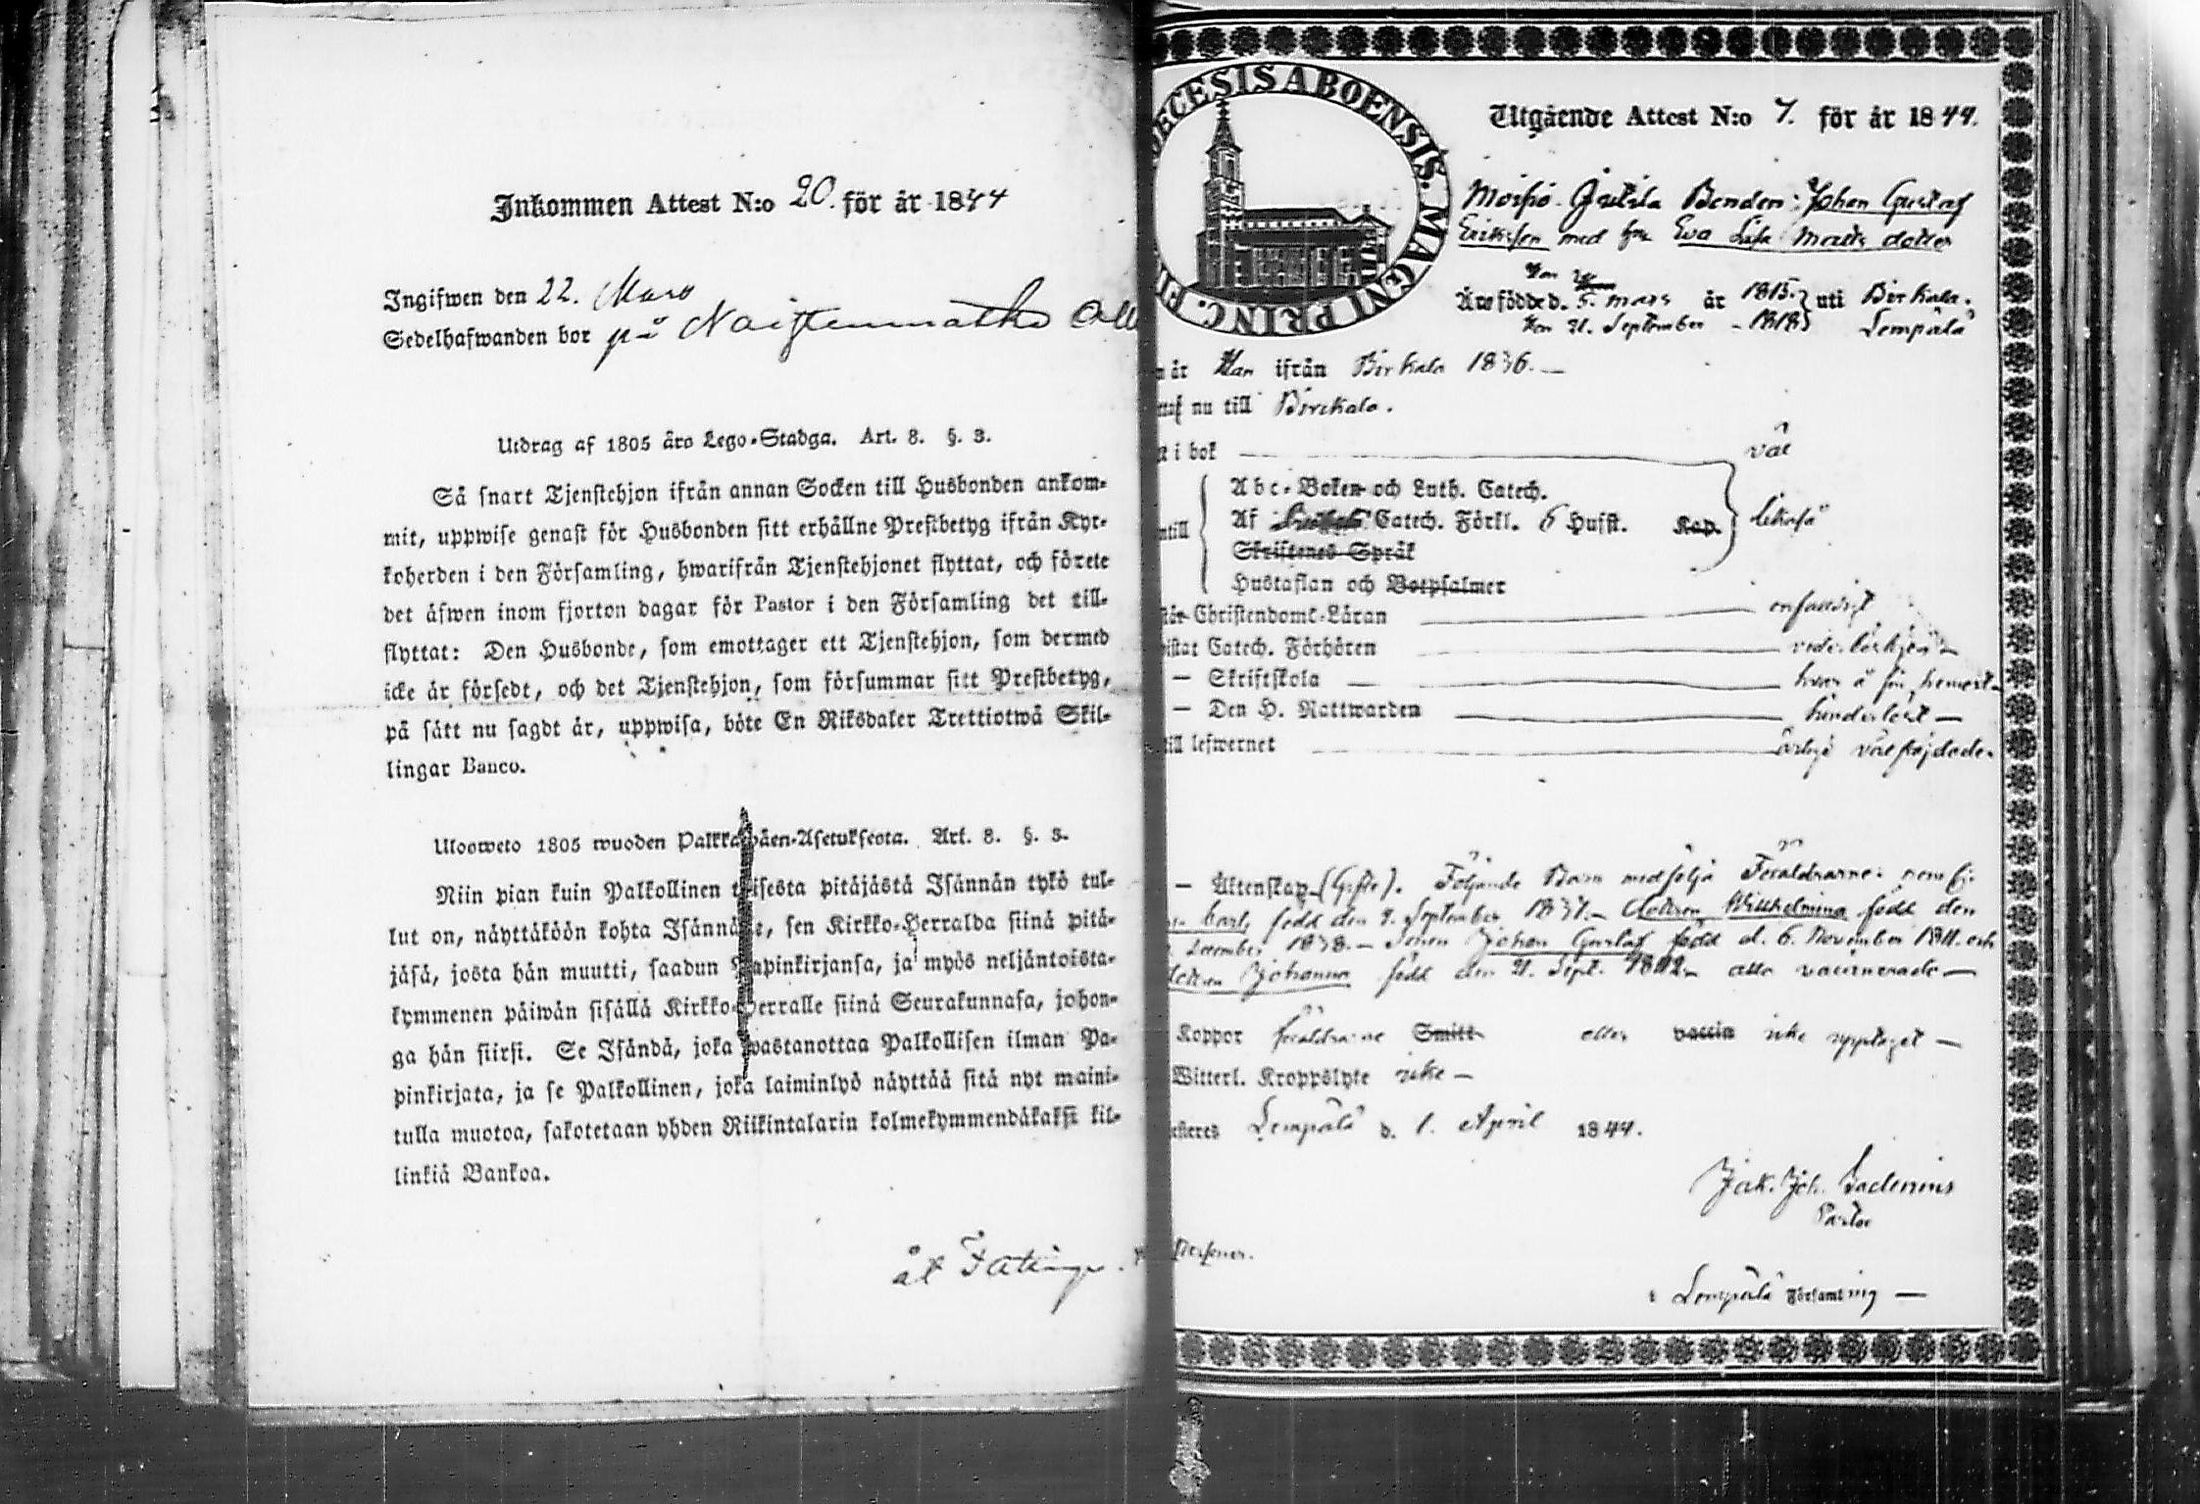 Inkommen Attest N:o 20. för år 1844
Ingifwen den 22. Mars
Sedelhafwanden bor på Naistenmatka
Utdrag af 1805 års Lego-Stadga. Art. 8. §. 3.
Så snart Tjenstehjon ifrån annan Socken till Husbonden ankom-
mit, uppwise genast för Husbonden sitt erhållne Prestbetyg ifrån Kyr-
koherden i den Församling, hwarifrån Tjenstehjonet flyttat, och förete
det äfwen inom fjorton dagar för Pastor i den Församling det till-
flyttat: Den Husbonde, som emottager ett Tjenstehjon, som dermed
icke är försedt, och det Tjenstehjon, som försummar sitt Prestbetyg,
på sätt nu sagdt är, uppwisa, böte En Riksdaler Trettiotwå Skil-
lingar Banco.
Uloosweto 1805 wuoden Palkkawäen-Asetuksesta. Art. 8. §. 3.
Niin pian kuin Palkollinen toisesta pitäjästä Isännän tykö tul-
lut on, näyttäköön kohta Isännälle, sen Kirkko-Herralda siinä pitä-
jäsä, josta hän muutti, saadun Papinkirjansa, ja myös neljäntoista-
kymmenen päiwän sisällä Kirkko-Herralle siinä Seurakunnasa, johon-
ga hän siirsi. Se Isändä, joka wastanottaa Palkollisen ilman Pa-
pinkirjata, ja se Palkollinen, joka laiminlyö näyttää sitä nyt maini-
tulla muotoa, sakotetaan yhden Riikintalarin kolmekymmendäkaksi kil-
linkiä Bankoa.
åt Fattige.
ECESIS ABOENSIS. MAGNI PRINC. FI
Utgående Attest N:o 7. för år 1844.
Moisio Jutila Bonden Johan Gustaf
Ericsson med hu Eva Lisa Matts dotter
Äro födde d. 5. mars år 1815. uti Birkala.
den 21. September - 1818 Lempälä
är Han ifrån Birkala 1836. —
nu till Birckala.
i bok väl
Abc-Boken och Luth. Catech.
Af Catech. Förkl. 6 Hufst. Kap. likaså
Skriftenes Språk
Hustaflan och Botpsalmer
Christendoms-Läran enfaldigt
Catech. Förhören
— Skriftskola
— Den H. Nattwarden hinderlöst —
till lefwernet ärlige väl
— Äktenskap (Gifte). Följande Barn medfölja Föräldrarne: nemlig:
Carl, född den 9. September 1837. — dottren Wilhelmina född den
December 1838. — Sonen Johan Gustaf född d. 6. November 1841. och
Johanna född den 21. Sept. 1842 — alla vaccinerade —
Koppor föräldrarne Smitt eller vaccin icke upptaget —
Witterl. Kroppslyte icke —
Lempälä d. 1. April 1844.
Jak. Joh.
Pastor
Personer.
i Lempälä Församling —